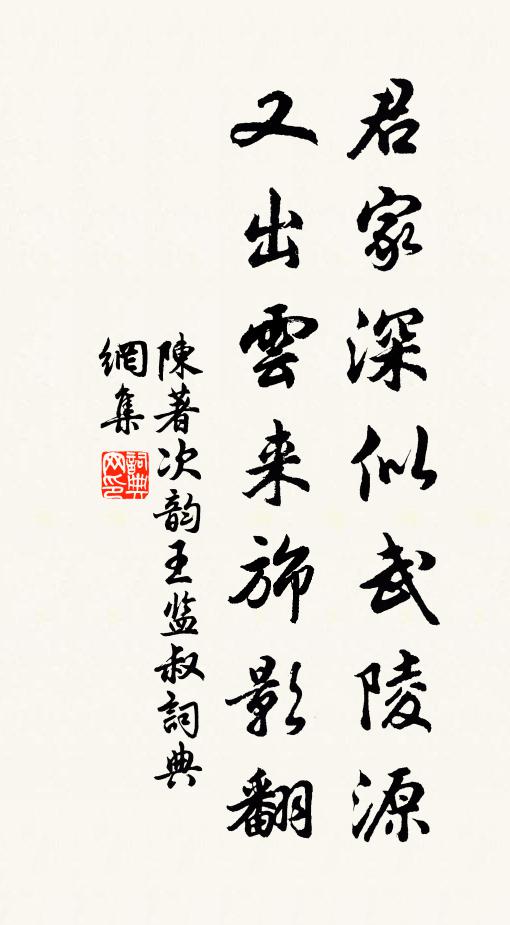 君家深似武陵源
又出雲来旆影翻
陳著次韵王监叔詞典
網集
詞典
网印